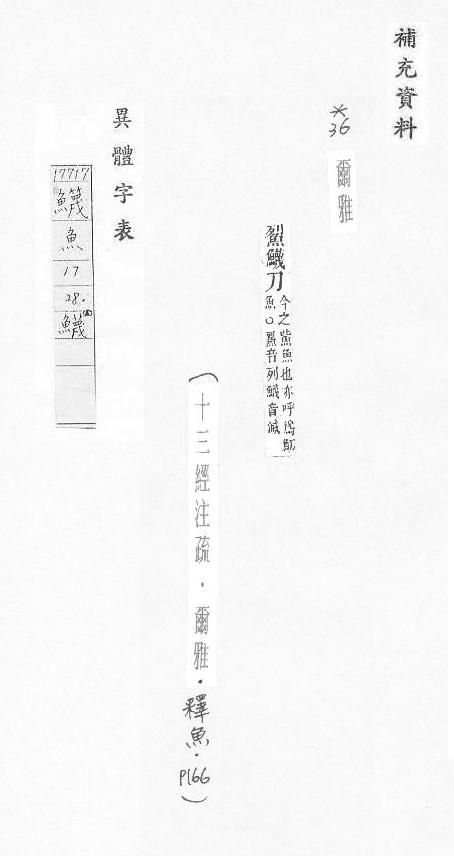 補充資料
*36
爾雅
鮤鱴刀
今之鮆魚也亦呼爲魛
魚○鮤音列鱴音滅
(十三經注疏．爾雅．釋魚．P166)
異體字表
17717
魚
17
28.
鱴